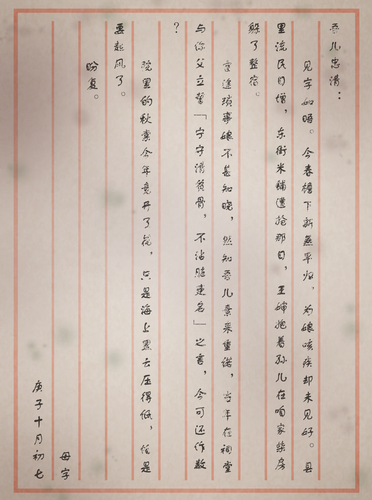 吾儿忠清：
见字如晤。今春檐下新燕早归，为娘咳疾却未见好。县
里流民日增，东街米铺遭抢那日，王婶抱着孙儿在咱家柴房
躲了整宿。
京途琐事娘不甚知晓，然知吾儿素来重诺，当年在祠堂
与你父立誓「字字清贫骨，不沾脂名」之言，今可还作数
？
院里的秋棠今年竟开了花，只是海上黑云压得低，怕是
要起风了。
盼复。
母字
庚子十月初七